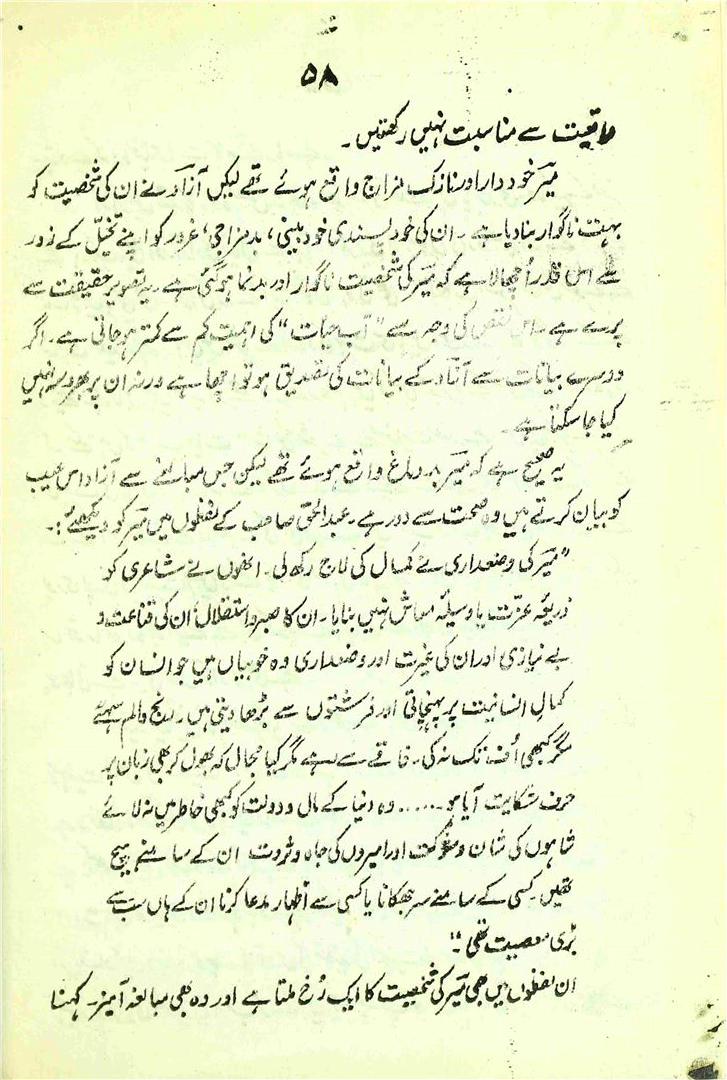 ۵۸
واقعیت سے مناسبت نہیں رکھتیں۔
میرؔ خود دار اور نازک مزاج واقع ہوئے تھے لیکن آزاد نے ان کی شخصیت کو
بہت ناگوار بنا دیا ہے۔ ان کی خود پسندی خود بینی، بدمزاجی، غرور کو اپنے تخیّل کے زور
سے اس قدر اُچھالا ہے کہ میرؔ کی شخصیت ناگوار اور بدنما ہو گئی ہے۔ یہ تصویر حقیقت سے
پرے ہے۔ اس نقص کی وجہ سے "آب حیات" کی اہمیت کم سے کمتر ہو جاتی ہے۔ اگر
دوسرے بیانات سے آزاد کے بیانات کی تصدیق ہو تو اچھا ہے ورنہ ان پر بھروسہ نہیں
کیا جا سکتا ہے۔
یہ صحیح ہے کہ میرؔ بد دماغ واقع ہوئے تھے لیکن جس مبالغے سے آزاد اس عیب
کو بیان کرتے ہیں وہ صحت سے دور ہے۔ عبدالحق صاحب کے لفظوں میں میرؔ کو دیکھئے:۔
"میرؔ کی وضعداری نے کمال کی لاج رکھ لی۔ انھوں نے شاعری کو
ذریعۂ عزّت یا وسیلۂ معاش نہیں بنایا۔ ان کا صبر و استقلال، ان کی قناعت و
بے نیازی اور ان کی غیرت اور وضعداری وہ خوبیاں ہیں جو انسان کو
کمالِ انسانیت پر پہنچاتی اور فرشتوں سے بڑھا دیتی ہیں۔ رنج و الم سہے
مگر کبھی اُف تک نہ کی۔ فاقے سے رہے مگر کیا مجال کہ بھول کر بھی زبان پر
حرف شکایت آیا ہو۔..... وہ دنیا کے مال و دولت کو کبھی خاطر میں نہ لائے
شاہوں کی شان و شوکت اور امیروں کی جاہ و ثروت ان کے سامنے ہیچ
تھیں۔ کسی کے سامنے سر جھکانا یا کسی سے اظہار مدعا کرنا ان کے ہاں سب سے
بڑی معصیت تھی۔"
ان لفظوں میں بھی میرؔ کی شخصیت کا ایک رُخ ملتا ہے اور وہ بھی مبالغہ آمیز۔ کہنا